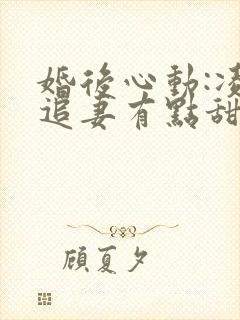 婚後心動:
追妻有點甜
顧夏夕